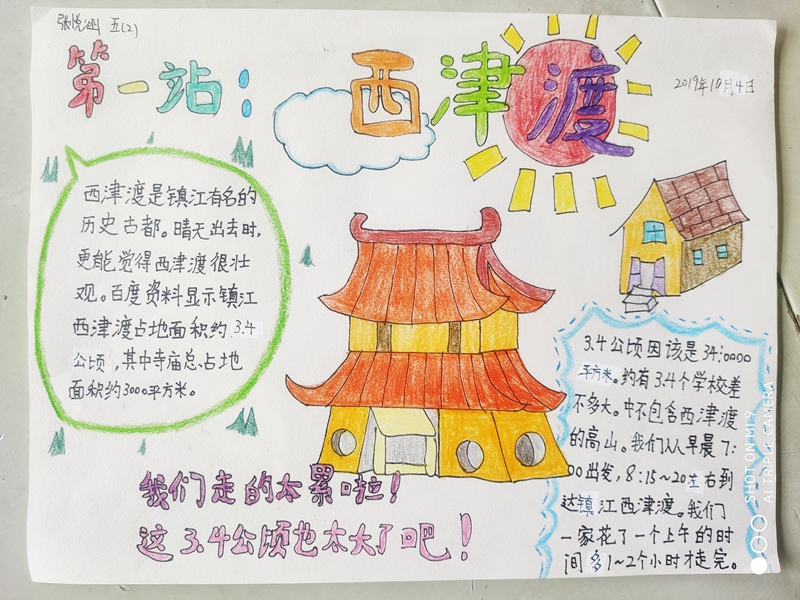 张悦涵 五(2)
第一站：
西津渡
2019年10月4日
西津渡是镇江有名的
历史古都。晴天出去时,
更能觉得西津渡很壮
观。百度资料显示镇江
西津渡占地面积约3.4
公顷，其中寺庙总占地
面积约3000平方米。
3.4公顷因该是34:0000
平方米。约有3.4个学校差
不多大。中不包含西津渡
的高山。我们从早晨7:
00出发，8:15~20左右到
达镇江西津渡。我们
一家花了一个上午的时
间多1~2个小时才走完。
我们走的太累啦！
这3.4公顷也太大了吧！
SHOT ON MI 9
AI TRIPLE CAMERA